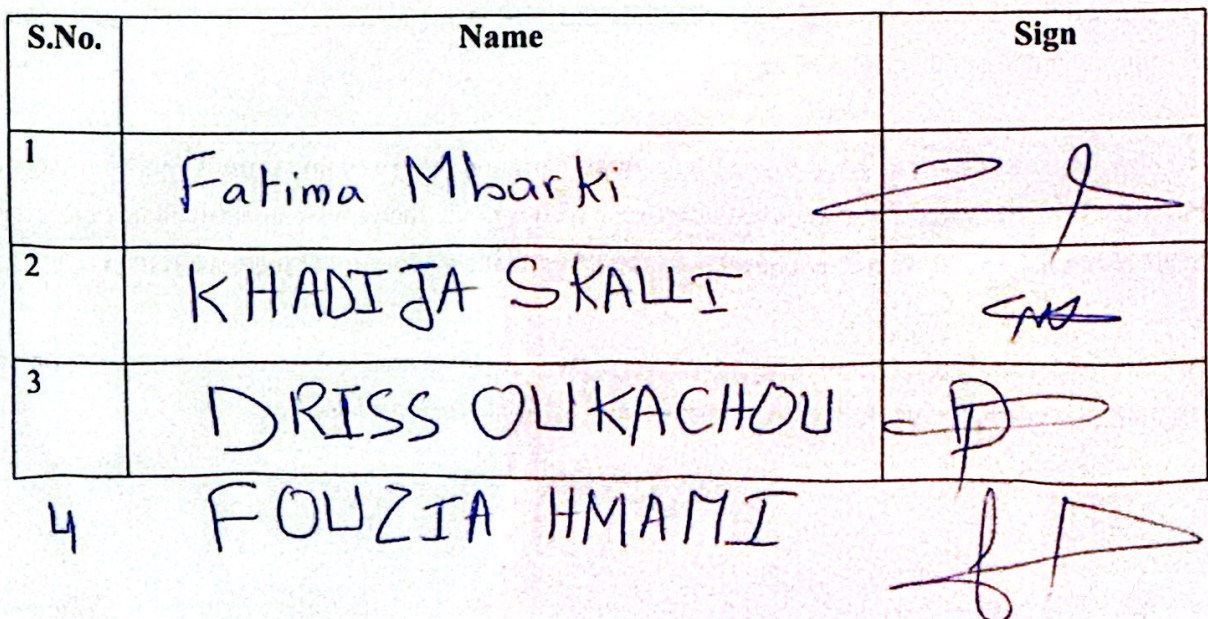 S.No. Name Sign
1 Fatima Mbarki
2 KHADIJA SKALLI
3 DRISS OUKACHOU
4 FOUZIA HMAMI